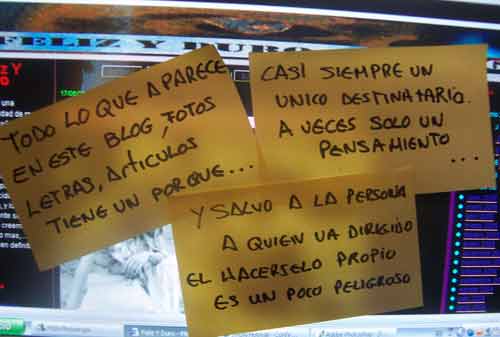 FELIZ Y DURO
TODO LO QUE APARECE
EN ESTE BLOG, FOTOS
LETRAS, ARTICULOS
TIENE UN PORQUE...
CASI SIEMPRE UN
UNICO DESTINATARIO.
A VECES SOLO UN
PENSAMIENTO
...
Y SALVO A LA PERSONA
A QUIEN VA DIRIGIDO
EL HACERSELO PROPIO
ES UN POCO PELIGROSO